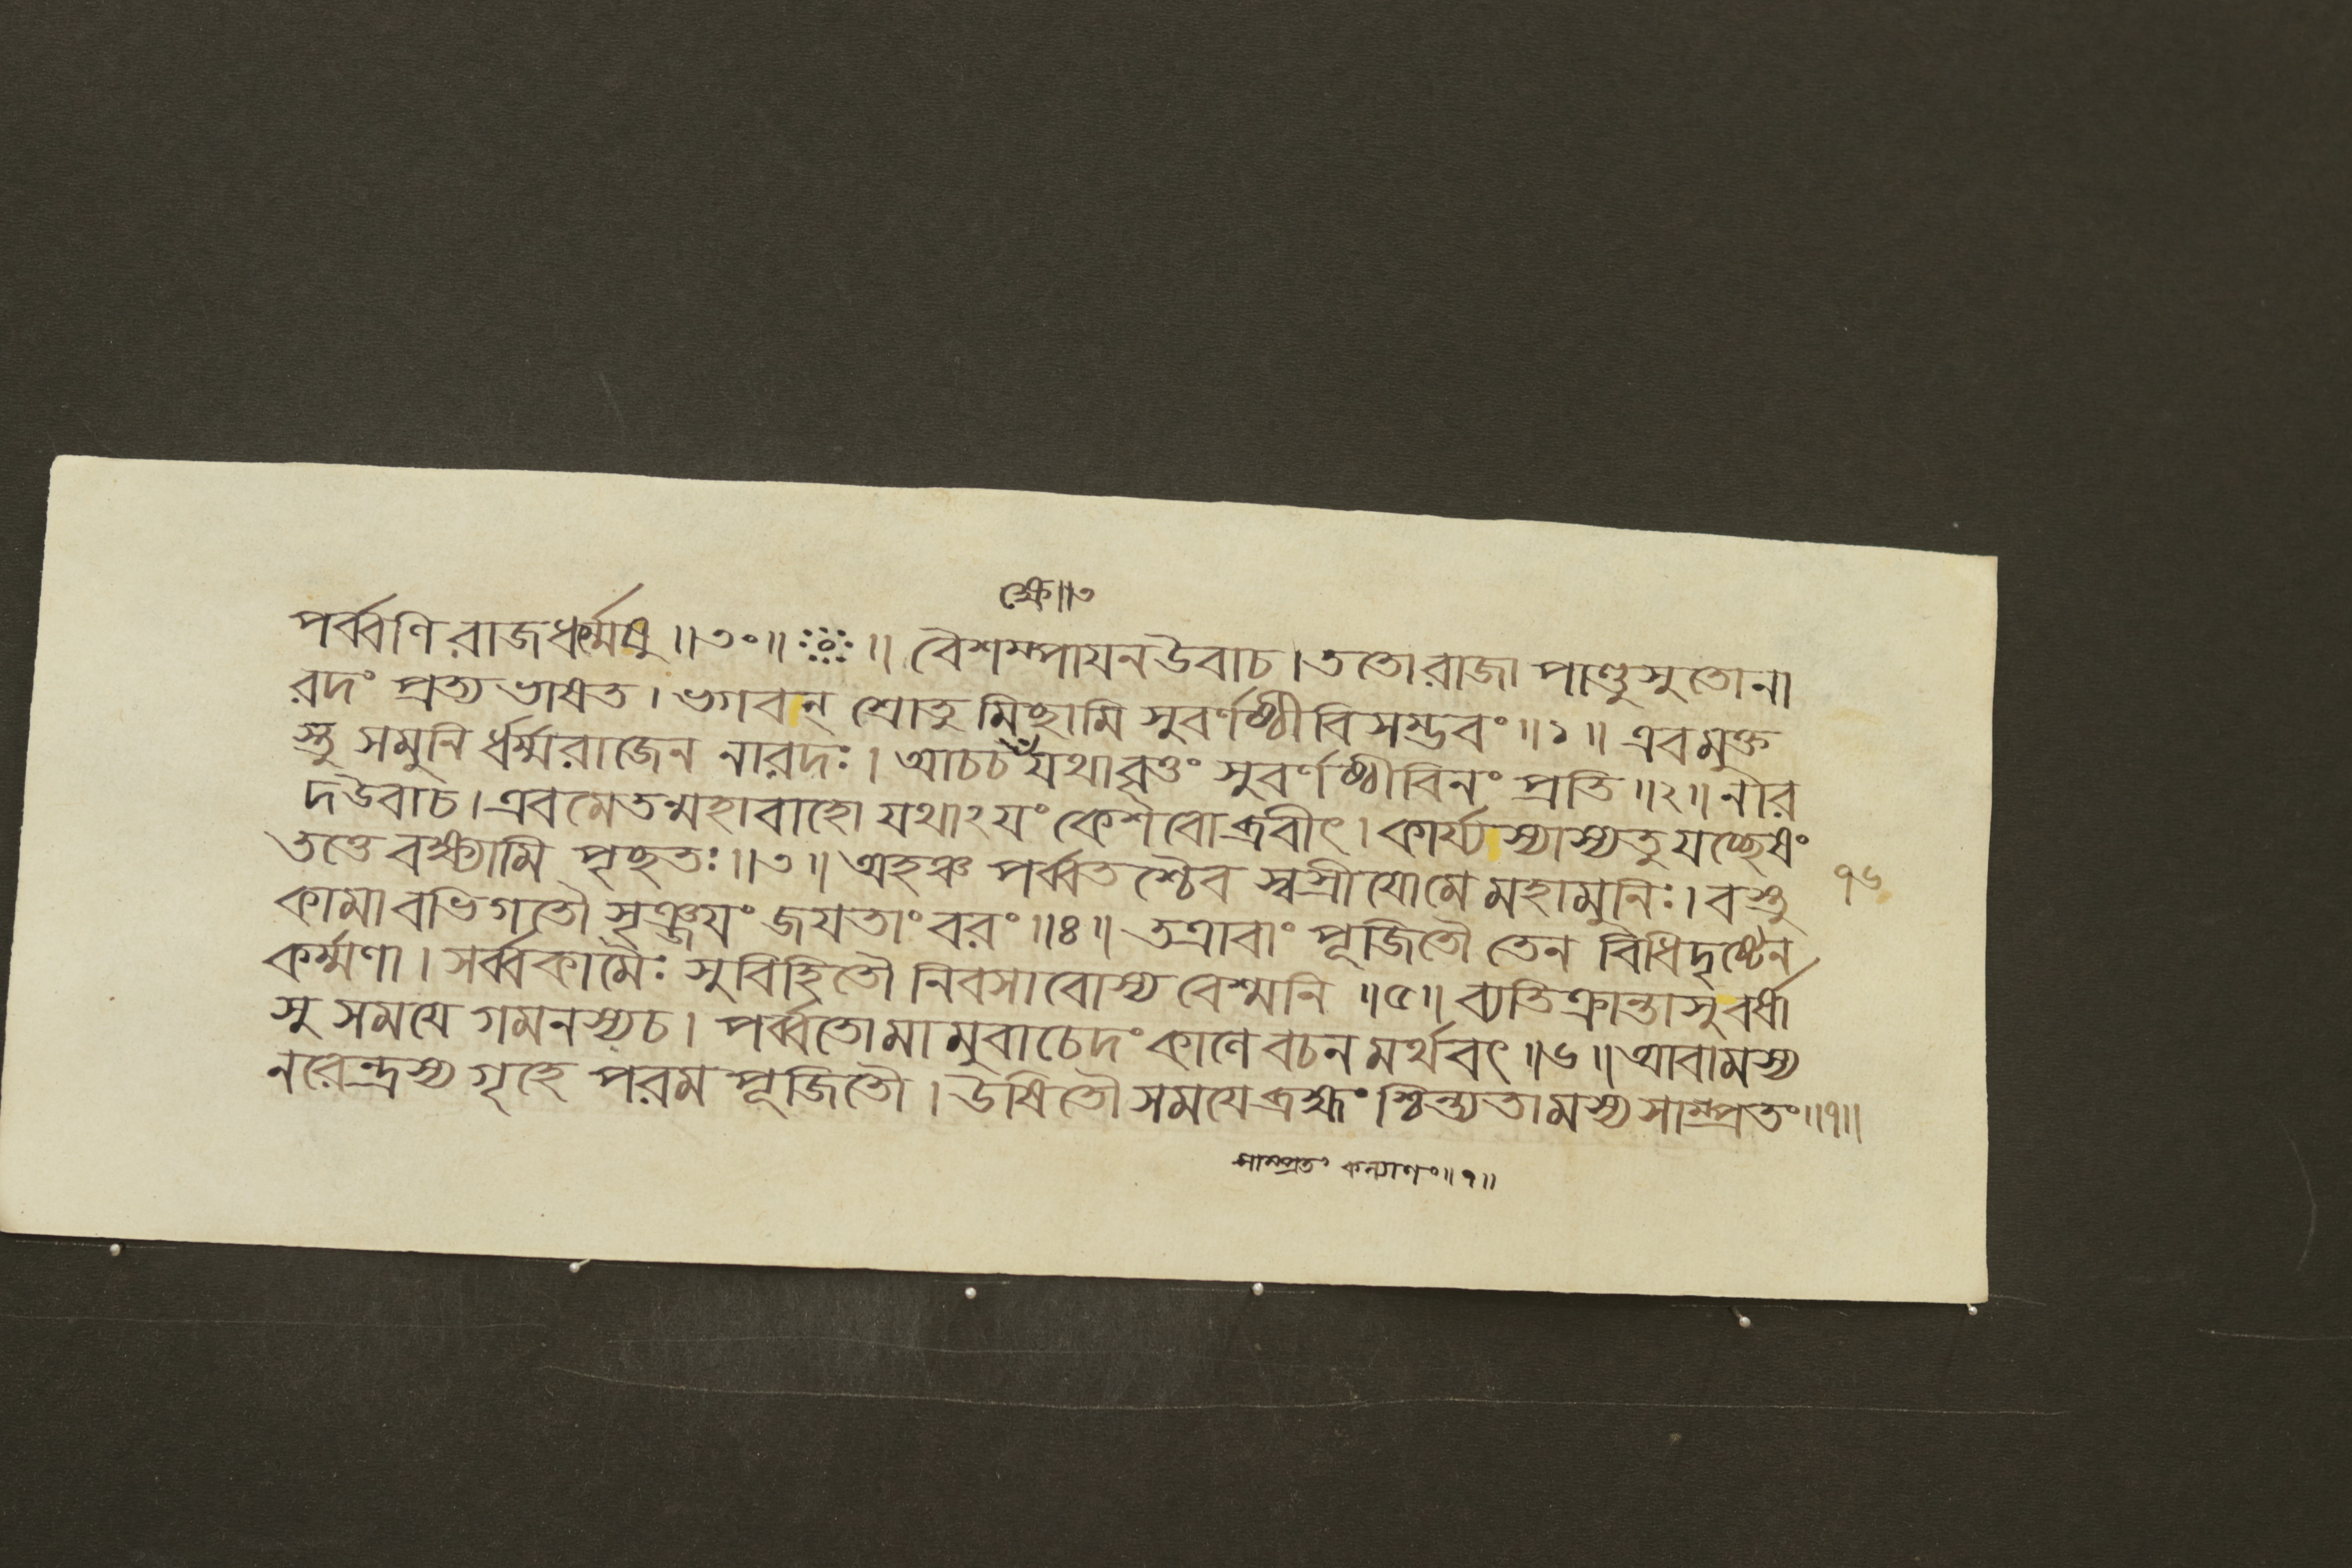 ক্ষে॥৩
পর্ব্বণি রাজধর্ম্মষু ॥৩০॥ ॥ বৈশম্পায়ন উবাচ । ততো রাজা পাণ্ডুসুতো না
রদং প্রত্যভাষত । ভগবন্ শ্রোতুমিছামি সুবর্ণষ্ঠীবিসম্ভবং ॥১॥ এবমুক্ত
স্তু সমুনি র্ধর্ম্মরাজেন নারদঃ । আচচ যথাবৃত্তং সুবর্ণষ্ঠীবিনং প্রতি ॥২॥ নার
দ উবাচ । এবমেতন্মহাবাহো যথাঽয়ং কেশবোব্রবীৎ । কার্য্যস্যাস্যতু যচ্ছেষং
তত্তে বক্ষ্যামি পৃছতঃ ॥৩॥ অহঞ্চ পর্ব্বতশ্চৈব স্বস্রীয়ো মে মহামুনিঃ । বস্তু
কামাবভিগতৌ সৃঞ্জয়ং জয়তাং বরং ॥৪॥ তত্রাবাং পূজিতৌ তেন বিধিদৃষ্টেন
কর্ম্মণা । সর্ব্বকামৈঃ সুবিহিতৌ নিবসাবোস্য বেশ্মনি ॥৫॥ ব্যতিক্রান্তাসু বর্ষা
সু সময়ে গমনস্যচ । পর্ব্বতো মামুবাচেদং কালে বচনমর্থবৎ ॥৬॥ আবামস্য
নরেন্দ্রস্য গৃহে পরমপূজিতৌ । উষিতৌ সময়ে ব্রহ্মং শ্চিন্ত্যতামস্য সাম্প্রতং ॥৭॥
৭৬
সাম্প্রতং কল্যাণং ॥৭॥